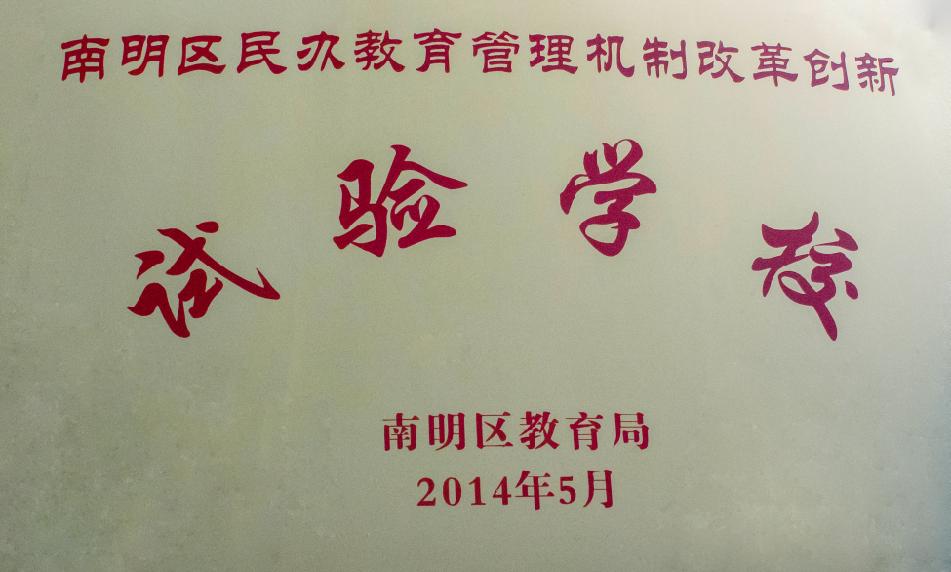 南明区民办教育管理机制改革创新
试验学校
南明区教育局
2014年5月